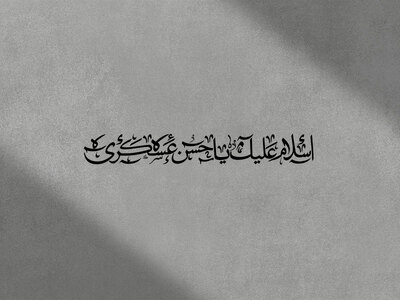 اسلام علیک یا حسن عسکری